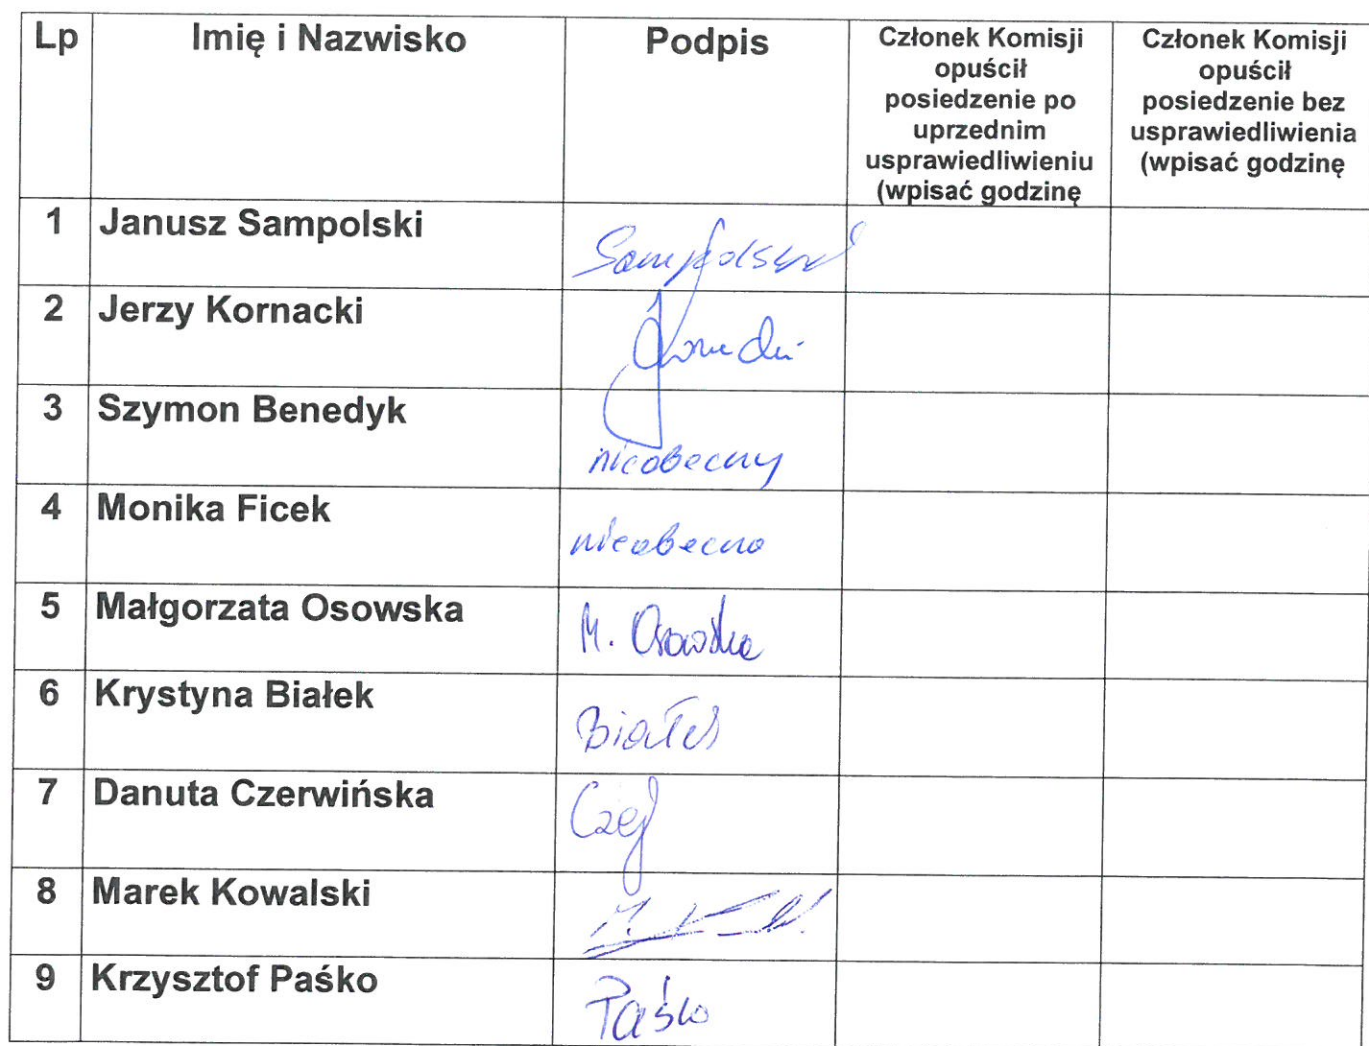 Lp Imię i Nazwisko Podpis Członek Komisji opuścił posiedzenie po uprzednim usprawiedliwieniu (wpisać godzinę Członek Komisji opuścił posiedzenie bez usprawiedliwienia (wpisać godzinę
1 Janusz Sampolski Sampolski
2 Jerzy Kornacki
3 Szymon Benedyk nieobecny
4 Monika Ficek nieobecna
5 Małgorzata Osowska M. Osowska
6 Krystyna Białek Białek
7 Danuta Czerwińska
8 Marek Kowalski
9 Krzysztof Paśko Paśko